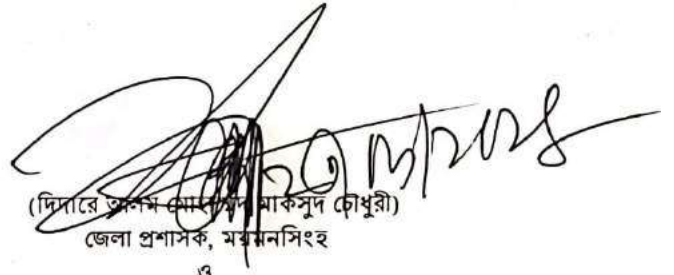 (দিদারে আলম মোহাম্মদ মাকসুদ চৌধুরী)
জেলা প্রশাসক, ময়মনসিংহ
ও